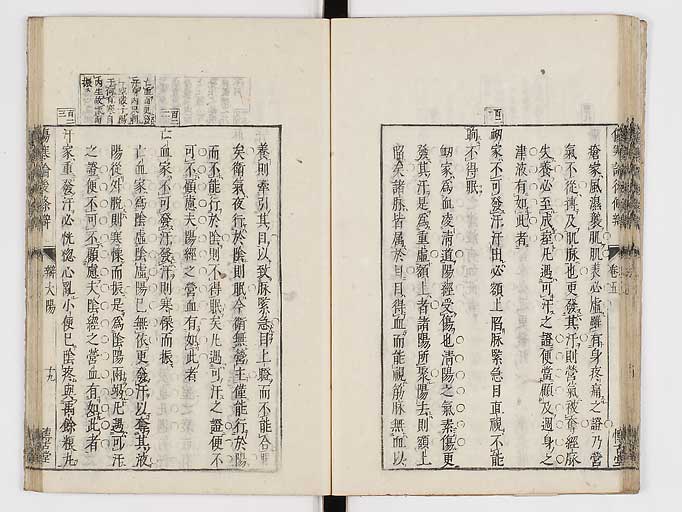 瘡家風濕襲肌肌表必虛雖有身疼痛之證乃營
氣不從擠及肌脉也更發其汗則營氣被奪經脉
失養必至成痙凡遇可汗之證便當顧及週身之
津液有如此者
百一
衂家不可發汗汗出必額上陷脉緊急目直視不能
眴不得眠
衂家爲血凌淸道陽經受傷也淸陽之氣素傷更
發其汗是爲重虛額上者諸陽所聚陽去則額上
陷矣諸脉皆屬於目目得血而能視筋脉無血以
卷五
養則牽引其目以致脉緊急目上瞪而不能合
矣衛氣夜行於陰則眠今衛無營主僅能行於陽
而不能行於陰則不得眠矣凡遇可汗之證便不
可不顧慮夫陽經之營血有如此者
百二
亡血家不可發汗發汗則寒慄而振
亡血家爲陰虛陰虛陽已無依更發汗以奪其液
陽從外脫則寒慄而振是爲陰陽兩竭凡遇可汗
之證便不可不顧慮夫陰經之營血有如此者
百三
汗家重發汗必恍惚心亂小便已陰疼與禹餘粮丸
傷寒論後條辨
辨太陽
十九